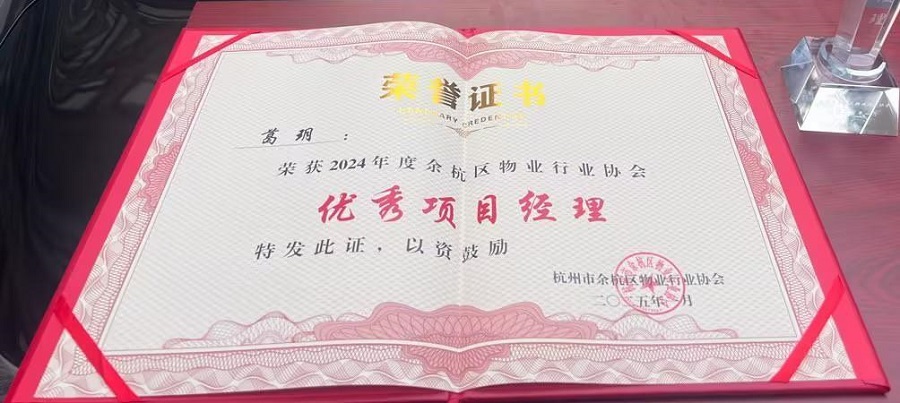 荣誉证书
葛玥：
荣获2024年度余杭区物业行业协会
优秀项目经理
特发此证，以资鼓励
杭州市余杭区物业行业协会
二〇二五年 月